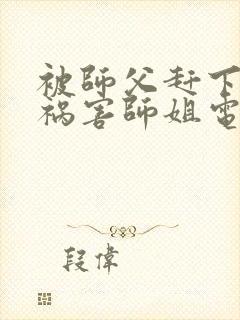 被師父赶下
祸害師姐電
段偉